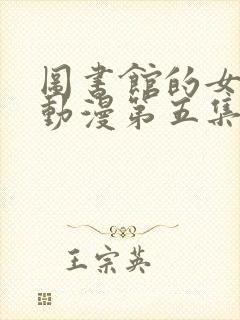 圖書館的女
動漫第五集
王宗英